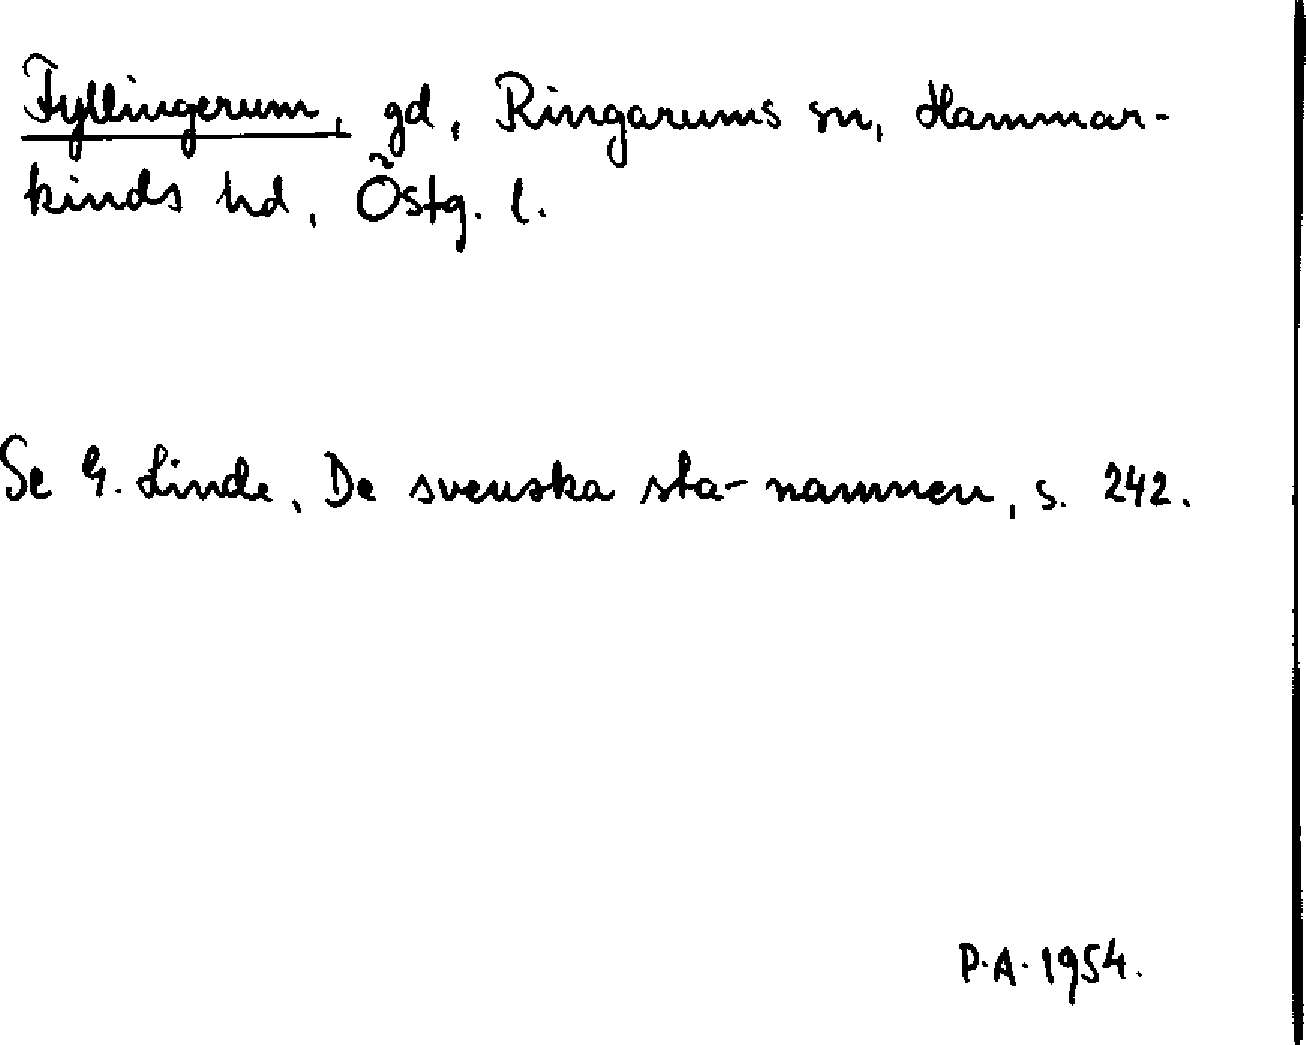 Fyllingerum, gd, Ringarums sn, Hammar-
kinds hd, Östg. l.
Se G. Linde, De svenska sta-namnen, s. 242.
P.A. 1954.